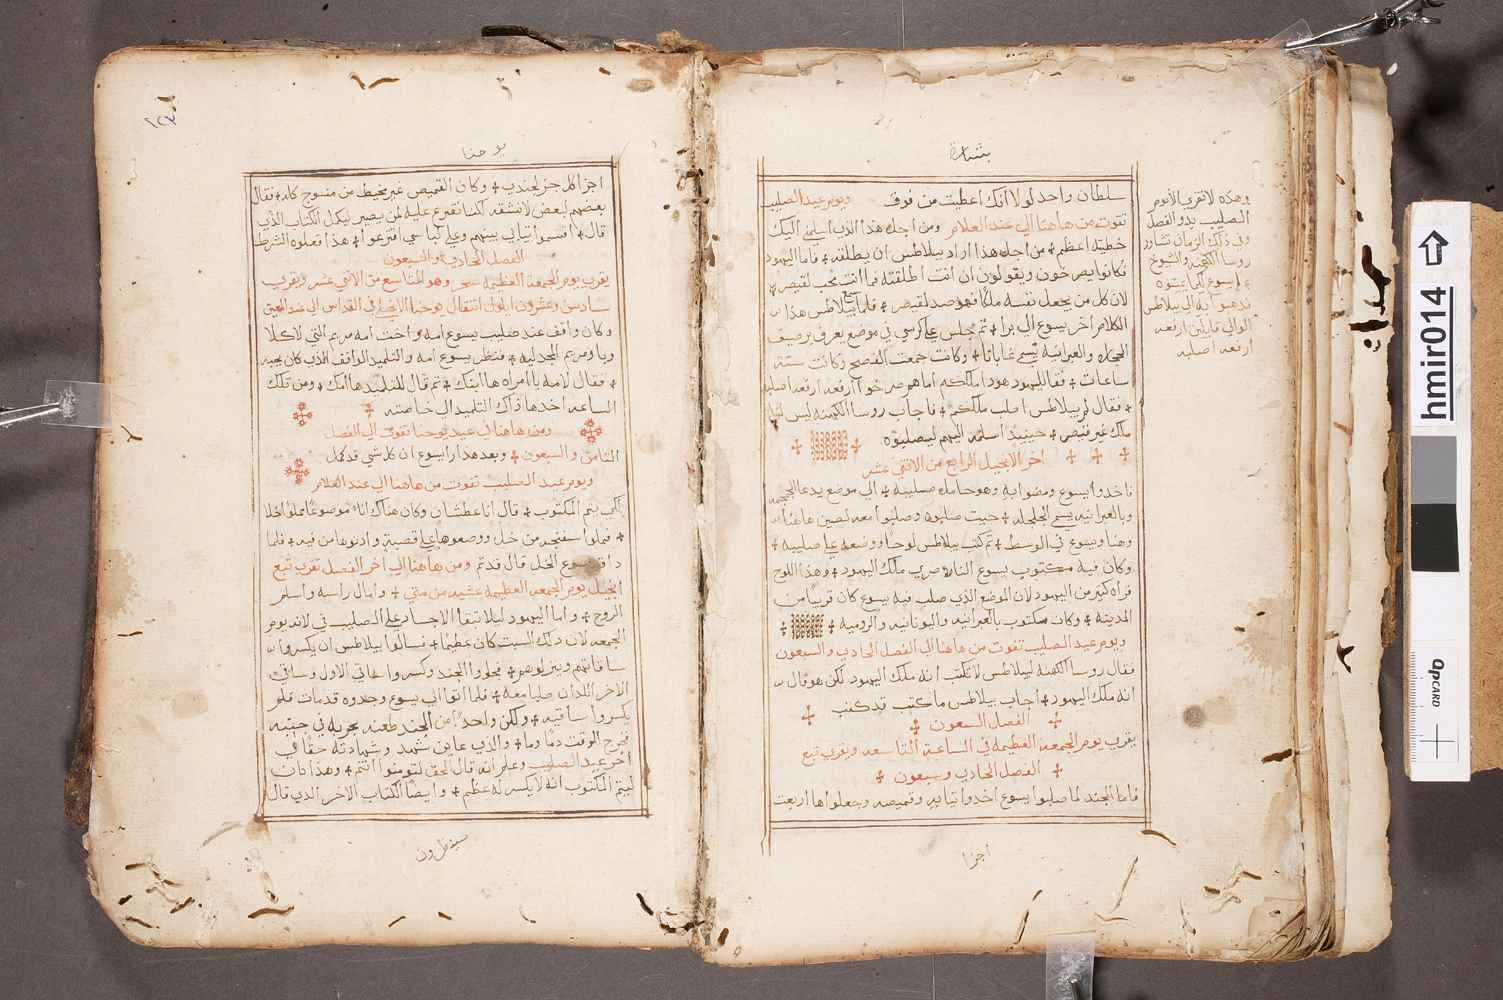 بشارة
سلطان واحد لولا انك اعطيت من فوق ويوم عيد الصليب
تقوت من هاهنا الي عند العلام ومن اجل هذا الذي اسلمني اليك
خطيته اعظم من اجل هذا اراد بيلاطس ان يطلقه فاما اليهود
فكانوا يصرخون ويقولون ان انت اطلقته فما انت محب لقيصر
لان كل من يجعل نفسه ملكا فهو ضد لقيصر فلما سمع بيلاطس هذا
الكلام اخرج يسوع الي برا ثم جلس علي كرسي في موضع يعرف برصيف
الحجاره والعبرانيه يسمي غاباثا وكانت جمعت الفصح وكانت ستة
ساعات فقال لليهود هودا ملككم اما هم صرخوا ارفعه ارفعه اصلبه
فقال لهم بيلاطس اصلب ملككم فاجاب روسا الكهنه ليس لنا
ملك غير قيصر حينيد اسلمه اليهم ليصلبوه
اخر الانجيل الرابع من الاثني عشر
فاخدوا يسوع ومضوا به وهو حامل صليبه الي موضع يدعا الجمجمه
وبالعبرانيه يسمي الجلجله حيث صلبوه وصلبوا معه لصين هاهنا
وهنا ويسوع في الوسط ثم كتب بيلاطس لوحا ووضعه علي صليبه
وكان فيه مكتوب يسوع الناصري ملك اليهود وهذا اللوح
قراه كثير من اليهود لان الموضع الذي صلب فيه يسوع كان قريبا من
المدينه وكان مكتوب بالعبرانيه واليونانيه والروميه
ويوم عيد الصليب تفوت من هاهنا الي الفصل الحادي والسبعون
فقال روسا الكهنه لبيلاطس لا تكتب انه ملك اليهود لكن هو قال
انه ملك اليهود اجاب بيلاطس ما كتبت قد كتبت
الفصل السبعون
يقرب يوم الجمعه العظيمه في الساعة التاسعه ويقري تبع
الفصل الحادي وسبعون
فاما الجند لما صلبوا يسوع اخدوا ثيابه وقميصه وجعلوها اربعت
اجزا
وهذه لا تقري الا يوم
الصليب بدو الفصل
وفي ذلك الزمان تشاور
روسا الكهنه والشيوخ
علي يسوع لكيما يميتوه
فدهبوا به الي بيلاطس
الوالي قايلين ارفعه
ارفعه اصلبه
١٢٣
يوحنا
اجزا لكل جز لجندي وكان القميص غير مخيط من منسوج كله فقال
بعضهم لبعض لا نشقه لكنا نقترع عليه لمن يصير ليكمل الكتاب الذي
قال اقتسموا ثيابي بينهم وعلي لباسي اقترعوا هذا فعلوه الشرط
الفصل الحادي والسبعون
يقرب يوم الجمعه العظيمه سحر وهو التاسع من الاثني عشر ويقري
سادس وعشرون ايلول انتقال يوحنا الانجيلي في القداس الي عند العين
وكان واقف عند صليب يسوع امه واخت امه مريم التي لاكلا
وبا ومريم المجدليه فنظر يسوع امه والتلميد الواقف الذي كان يحبه
فقال لامه يا امراه ها ابنك ثم قال للتلميد ها امك ومن تلك
الساعه اخدها ذاك التلميد الي خاصته
ومن هاهنا في عيد يوحنا تفوت الي الفصل
الثامن والسبعون وبعد هذا راا يسوع ان كل شي قد كمل
ويوم عيد الصليب تفوت من هاهنا الي عند العلام
لكي يتم المكتوب قال انا عطشان وكان هناك اناء موضوعا مملوا خلا
فملوا سفنجه من خل ووضعوها علي قصبة وادنوها من فيه فلما
ذاق يسوع الخل قال قد تم ومن هاهنا الي اخر الفصل تقري تبع
انجيل يوم الجمعه العظيمه عشيه من متي وامال راسه واسلم
الروح واما اليهود ليلا تبقا الاجساد علي الصليب في لانه يوم
الجمعه لان ذلك السبت كان عظيما فسالوا بيلاطس ان يكسروا
ساقاتهم وينزلوهم فجاوا الجند وكسروا ساقي الاول وساقي
الاخر اللدان صلبا معه فلما اتوا الي يسوع وجدوه قد مات فلم
يكسروا ساقيه ولكن واحدا من الجند طعنه بحربه في جنبه
فخرج للوقت دما وما والذي عاين شهد وشهادته حقا في
اخر عيد الصليب وعلم انه قال الحق لتومنوا انتم وهذا كان
ليتم المكتوب انه لا يكسر له عظم وايضا الكتاب الاخر الذي قال
سينظرون
hmir014
dpCARD